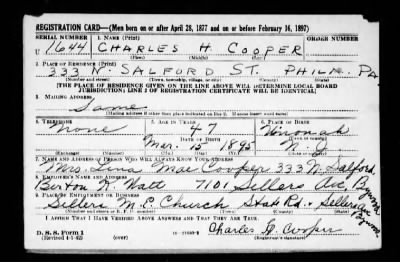 REGISTRATION CARD—(Men born on or after April 28, 1877 and on or before February 16, 1897)
SERIAL NUMBER 1. NAME (Print) ORDER NUMBER
U 1644 CHARLES H. COOPER
(First) (Middle) (Last)
2. PLACE OF RESIDENCE (Print)
333 N. SALFORD ST. PHILA. PA
(Number and street) (Town, township, village, or city) (County) (State)
[THE PLACE OF RESIDENCE GIVEN ON THE LINE ABOVE WILL DETERMINE LOCAL BOARD
JURISDICTION; LINE 2 OF REGISTRATION CERTIFICATE WILL BE IDENTICAL]
3. MAILING ADDRESS
Same
[Mailing address if other than place indicated on line 2. If same insert word same]
4. TELEPHONE 5. AGE IN YEARS 6. PLACE OF BIRTH
None 47 Wenonah
DATE OF BIRTH
Mar. 15 1895 N. J.
(Mo.) (Day) (Yr.)
7. NAME AND ADDRESS OF PERSON WHO WILL ALWAYS KNOW YOUR ADDRESS
Mrs. Lena Mae Cooper 333 N. Salford
8. EMPLOYER'S NAME AND ADDRESS
Burton K. Watt 7101 Sellers Ave, Bywood
9. PLACE OF EMPLOYMENT OR BUSINESS
Sellers M. E. Church State Rd. & Sellers Ave Bywood
(Number and street or R. F. D. number) (Town) (County) (State)
I AFFIRM THAT I HAVE VERIFIED ABOVE ANSWERS AND THAT THEY ARE TRUE.
D. S. S. Form 1
(Revised 4-1-42) (over) Charles H. Cooper
(Registrant's signature)